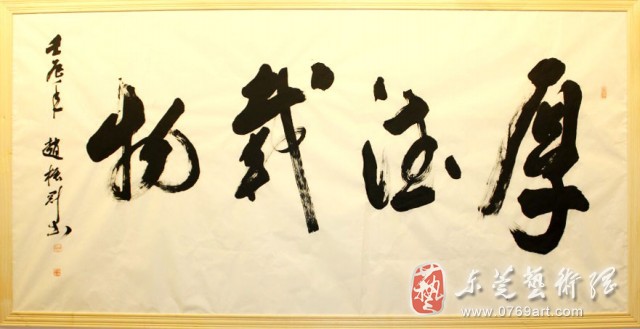 厚德载物
壬辰年 赵振
艺 东莞艺术网
www.0769art.com